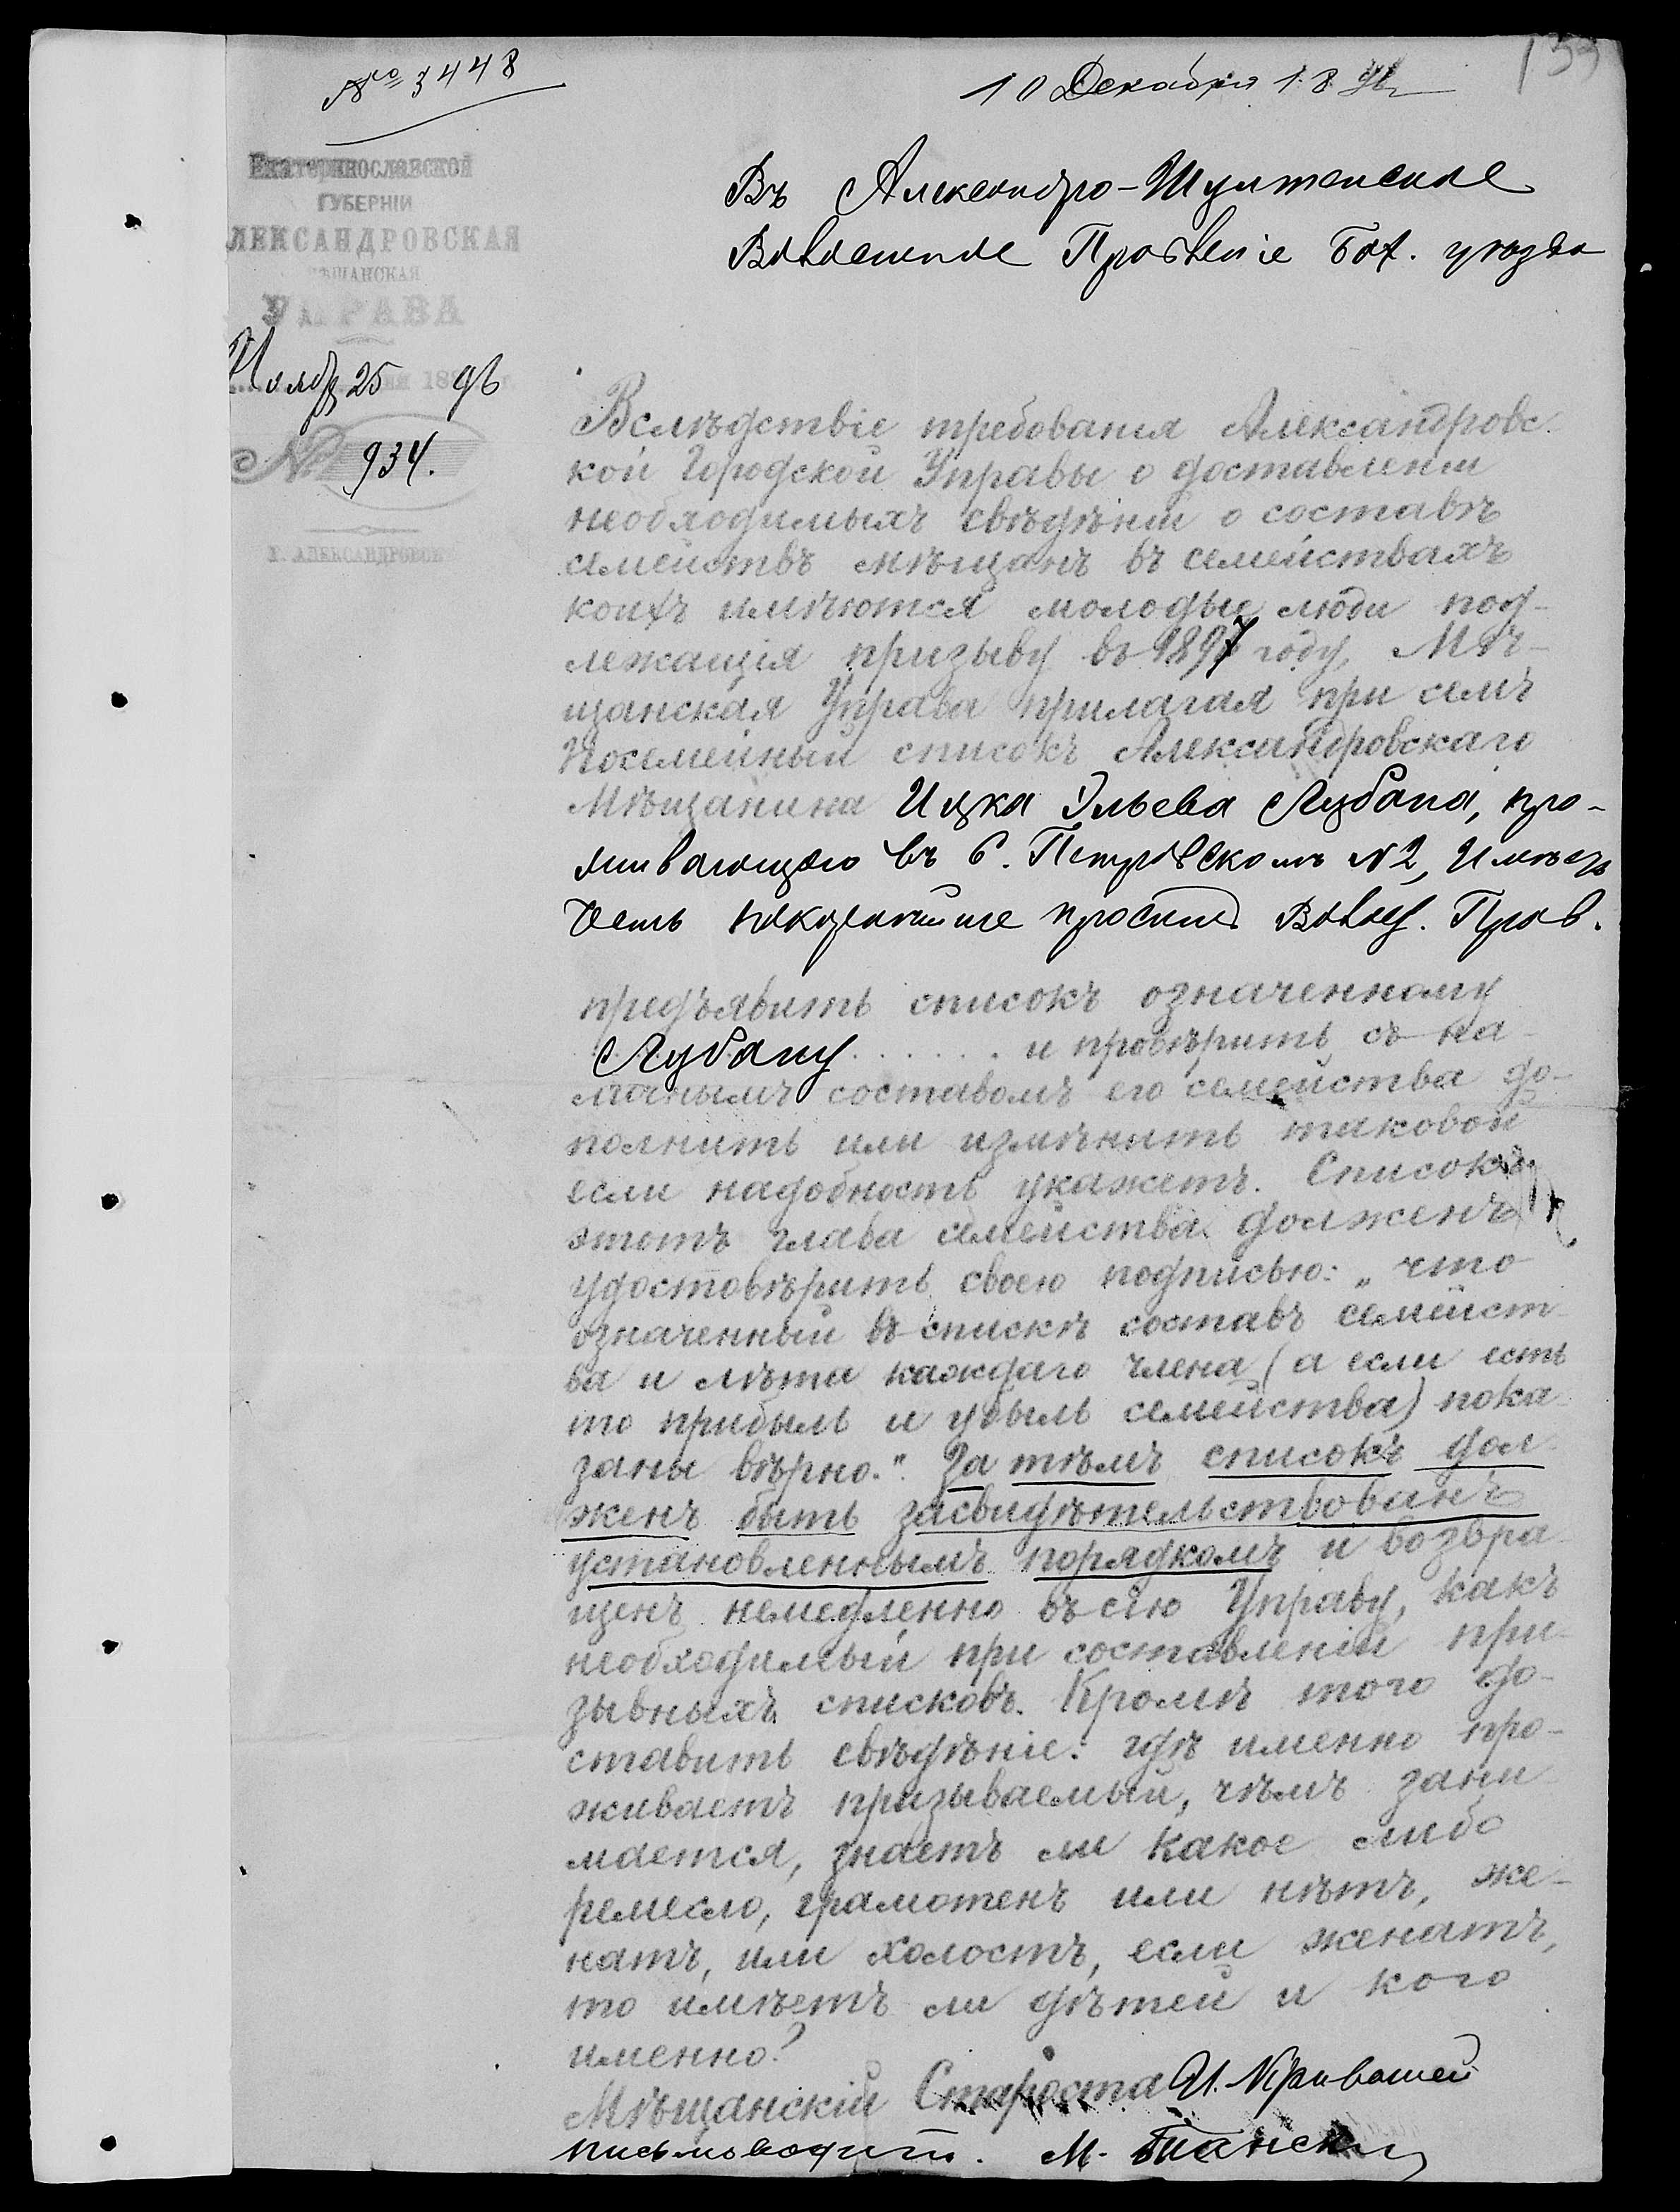 № 3448
10 Декабря 1896
Екатеринославской
ГУБЕРНІИ
ЛЕКСАНДРОВСКАЯ
ѢЩАНСКАЯ
УПРАВА
Ноября 25 96
№ 934.
Г. АЛЕКСАНДРОВСК
Въ Александро-Шультенское
Волостное Правленіе Бах. уѣзда
Вслѣдствіе требованія Александровс-
кой Городской Управы о доставленіи
необходимыхъ свѣдѣній о составѣ
семействъ мѣщанъ въ семействахъ
коихъ имѣются молодые люди под-
лежащія призыву въ 1897 году, Мѣ-
щанская Управа прилагая при семъ
Посемейный списокъ Александровскаго
Мѣщанина Ицка Эльева Лубана, про-
живающаго въ с. Петровскомъ №2, Имѣетъ
честь покорнѣйше просить Волост. Прав.
предъявить списокъ означенному
Лубану . . . . . . и провѣрить съ на-
личнымъ составомъ его семейства до-
полнить или измѣнить таковой
если надобность укажетъ. Списокъ
этотъ глава семейства долженъ
удостовѣрить своею подписью: „что
означенный въ спискѣ составъ семейст
ва и лѣта каждаго члена (а если есть
то прибыль и убыль семейства) пока
заны вѣрно." За тѣмъ списокъ дол
женъ быть засвидѣтельствованъ
установленнымъ порядкомъ и возвра
щенъ немедленно въ сію Управу, какъ
необходимый при составленіи при-
зывныхъ списковъ. Кромѣ того до-
ставить свѣдѣніе: гдѣ именно про-
живаетъ призываемый, чѣмъ зани
мается, знаетъ ли какое либо
ремесло, грамотенъ или нѣтъ, же-
натъ, или холостъ, если женатъ,
то имѣетъ ли дѣтей и кого
именно?
Мѣщанскій Староста И. Кривошей
письмоводит. М.